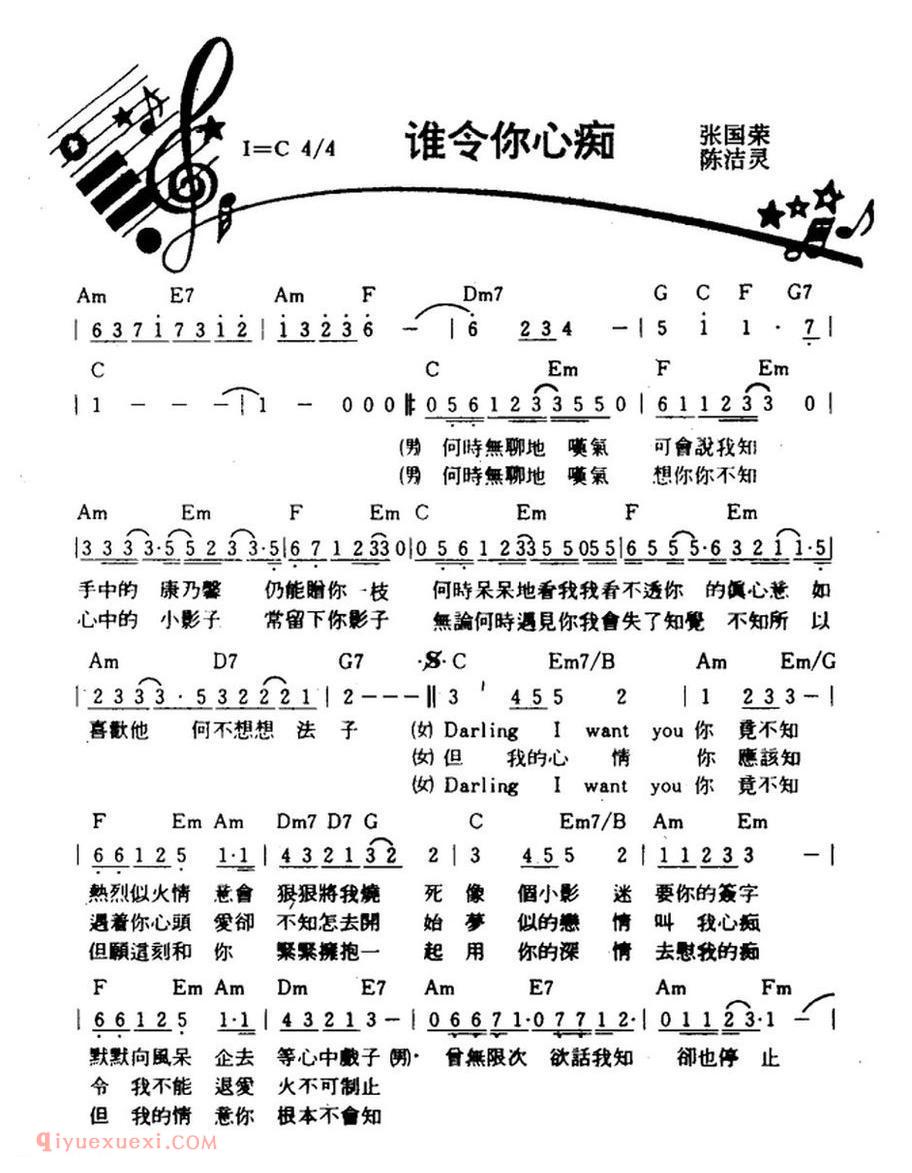 谁令你心痴
I=C 4/4
张国荣
陈洁灵
Am E7 Am F Dm7 G C F G7
| 6 3 7 1 7 3 1 2 | 1 3 2 3 6 — | 6 2 3 4 — | 5 1 1 · 7 |
C C Em F Em
| 1 — — — | 1 — 0 0 0 ‖: 0 5 6 1 2 3 3 3 5 5 0 | 6 1 1 2 3 3 0 |
(男) 何時無聊地 嘆氣 可會說我知
(男) 何時無聊地 嘆氣 想你你不知
Am Em F Em C Em F Em
| 3 3 3 3 · 5 5 2 3 3 · 5 | 6 7 1 2 3 3 0 | 0 5 6 1 2 3 3 5 5 0 5 5 | 6 5 5 5 · 6 3 2 1 1 · 5 |
手中的 康乃馨 仍能贈你一枝 何時呆呆地看我我看不透你 的眞心意 如
心中的 小影子 常留下你影子 無論何時遇見你我會失了知覺 不知所 以
Am D7 G7 𝄋 C Em7/B Am Em/G
| 2 3 3 3 · 5 3 2 2 2 1 | 2 — — — ‖ 3 4 5 5 2 | 1 2 3 3 — |
喜歡他 何不想想 法 子 (女) Darling I want you 你 竟不知
(女) 但 我的心 情 你 應該知
(女) Darling I want you 你 竟不知
F Em Am Dm7 D7 G C Em7/B Am Em
| 6 6 1 2 5 1 · 1 | 4 3 2 1 3 2 2 | 3 4 5 5 2 | 1 1 2 3 3 — |
熱烈似火情 意會 狠狠將我燒 死 像 個小影 迷 要你的簽字
遇着你心頭 愛卻 不知怎去開 始 夢 似的戀 情 叫 我心痴
但願這刻和 你 緊緊擁抱一 起 用 你的深 情 去慰我的痴
F Em Am Dm E7 Am E7 Am Fm
| 6 6 1 2 5 1 · 1 | 4 3 2 1 3 — | 0 6 6 7 1 · 0 7 7 1 2 · | 0 1 1 2 3 · 1 — |
默默向風呆 企去 等心中戲子 (男) · 曾無限次 欲話我知 卻也停 止
令 我不能 退愛 火不可制止
但 我的情 意你 根本不會知
qiyuexuexi.com